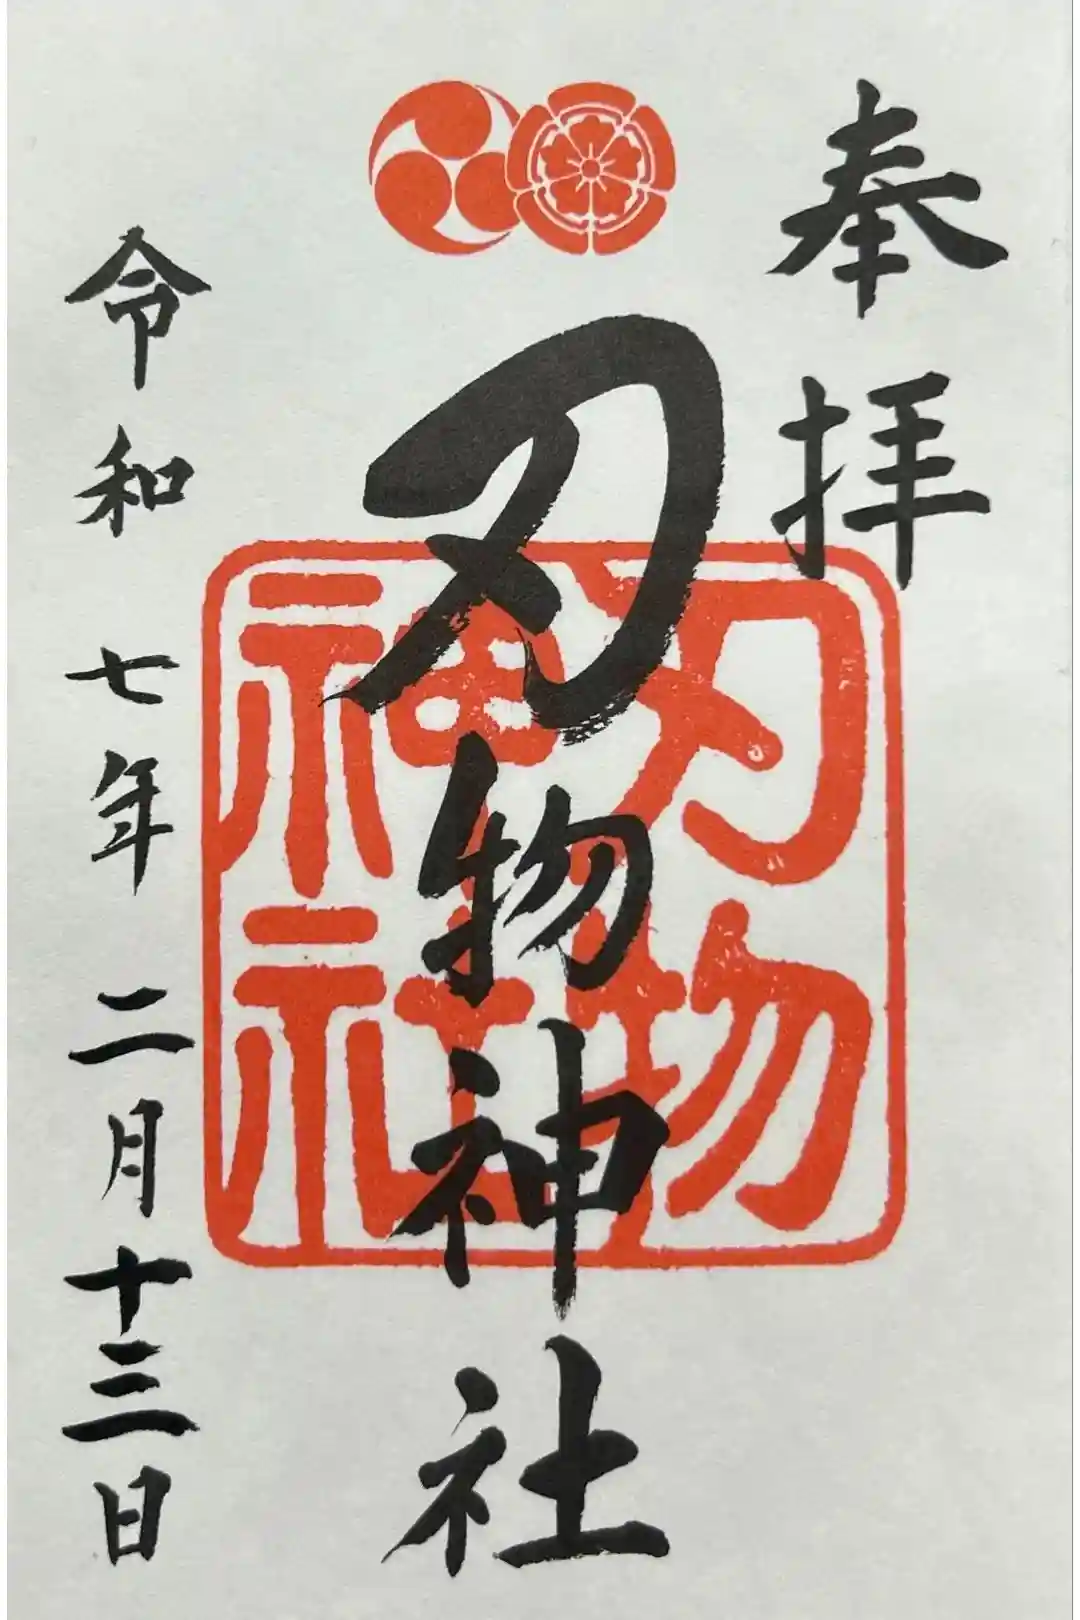 奉拝
刃物神社
刃物
神社
令和七年二月十三日